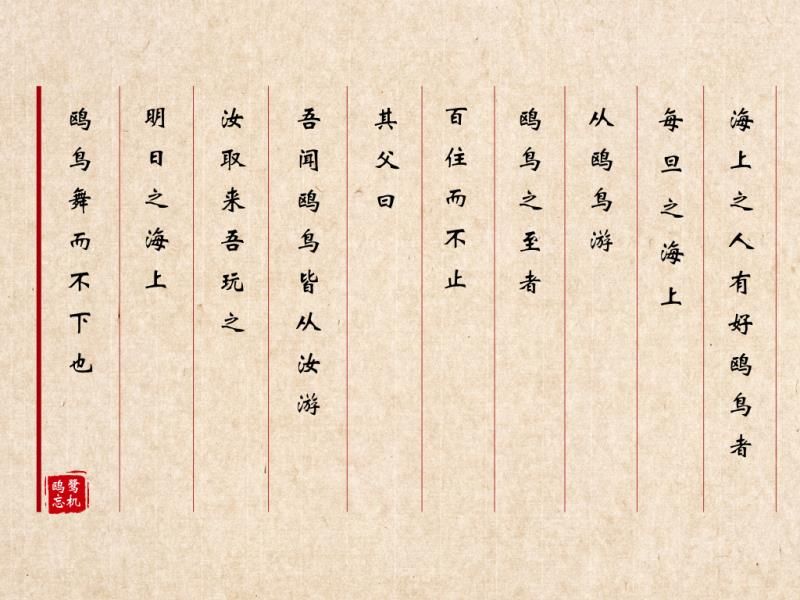 海上之人有好鸥鸟者
每旦之海上
从鸥鸟游
鸥鸟之至者
百住而不止
其父曰
吾闻鸥鸟皆从汝游
汝取来吾玩之
明日之海上
鸥鸟舞而不下也
鹭机
鸥忘